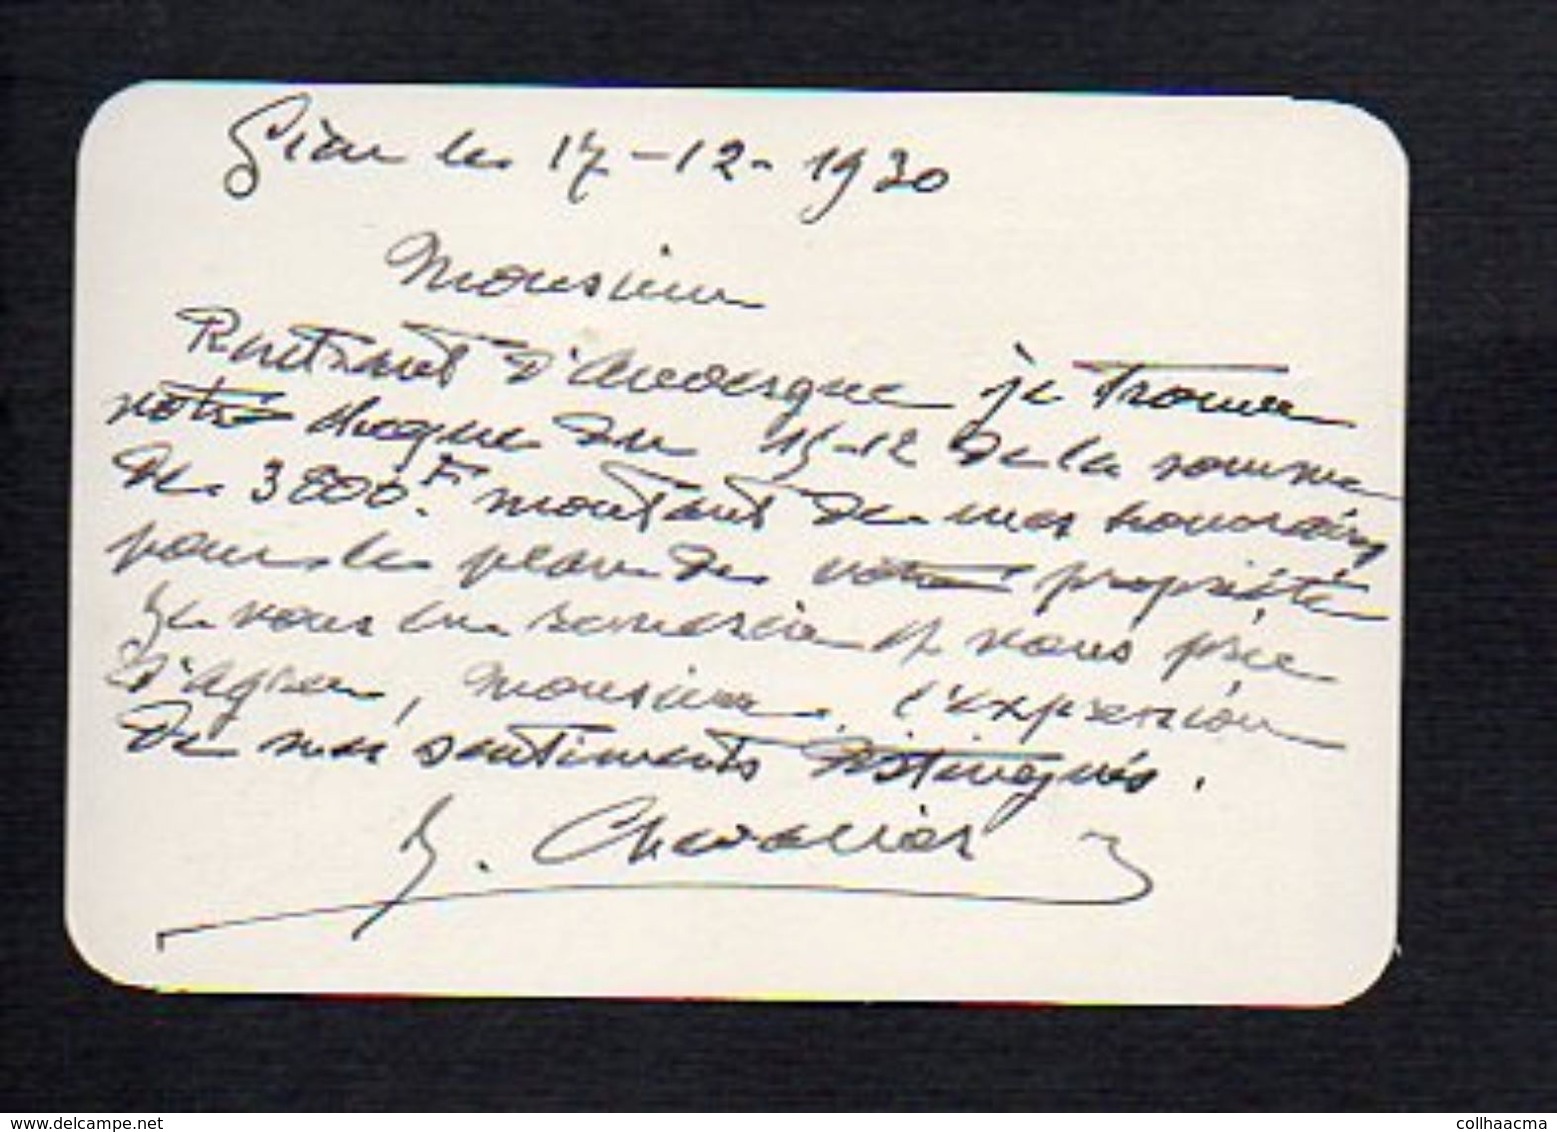 Gien le 17-12-1930
Monsieur
Rentrant d'Auvergne je trouve
votre cheque du 15-12 de la somme
de 3800.F montant de mes honoraires
pour le plan de votre propriété
Je vous en remercie et vous prie
d'agréer, Monsieur, l'expression
de mes sentiments distingués.
G. Chevallier
www.delcampe.net
collhaacma